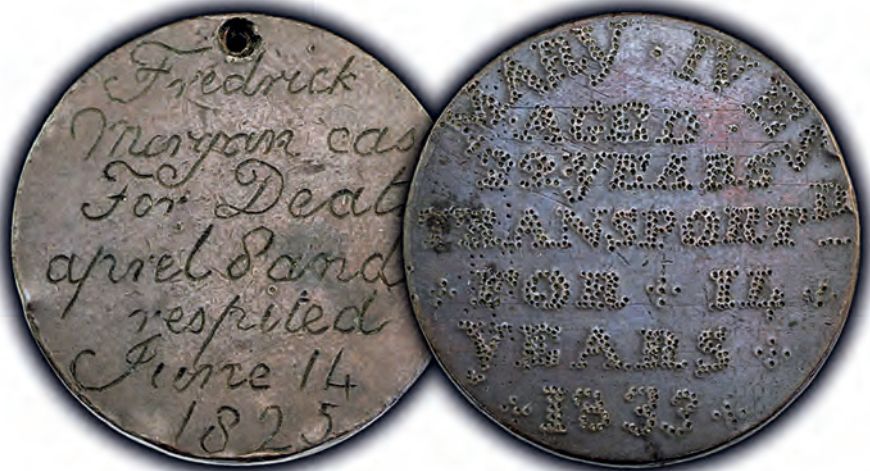 Fredrick
Morgan cas
For Deat
apriel 8 and
respited
June 14
1825
MARY · IVES
· AGED ·
22 YEARS
TRANSPORTD
FOR 14
YEARS
1833